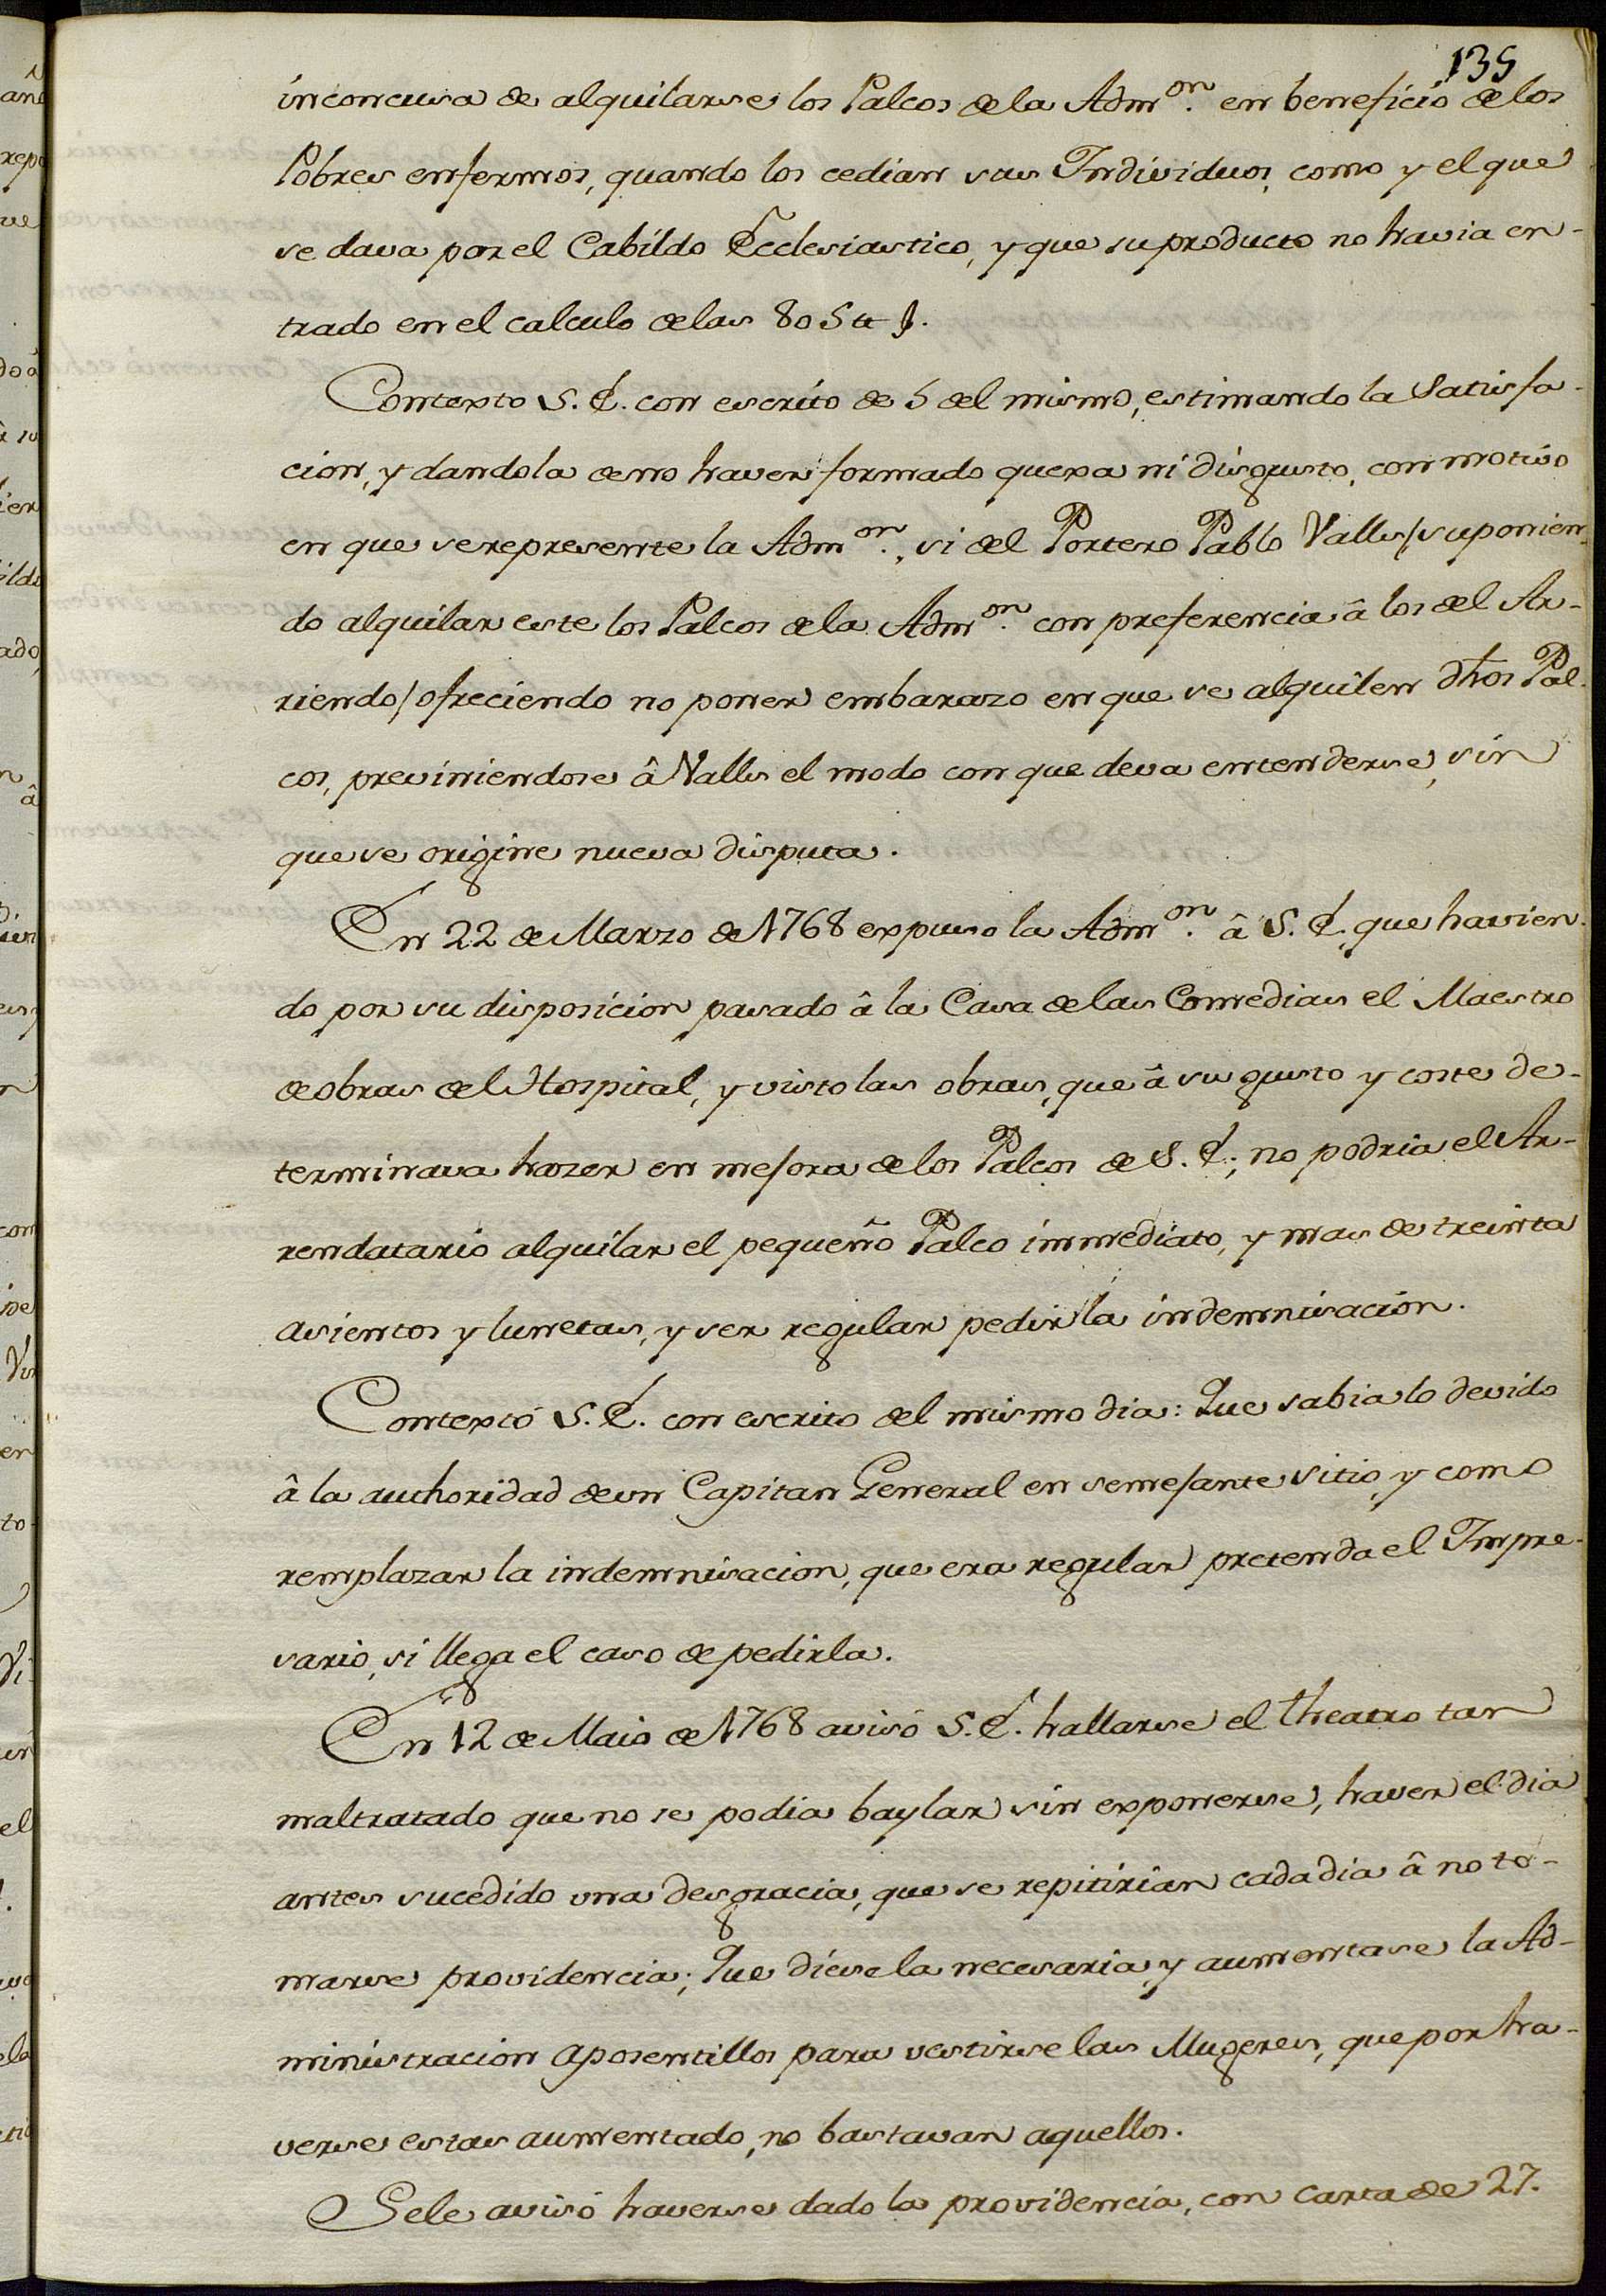 135
inconcusa de alquilarse los Palcos dela Adm.on en beneficio delos
Pobres enfermos, quando los cedian sus Individuos, como y el que
se dava por el Cabildo Ecclesiastico, y que su producto no havia en-
trado en el calculo delas 80
Contexto S. E. con escrito de 5 del mismo, estimando la Satisfa-
cion, y dandola deno haver formado quexa ni disgusto, con motivo
en que se represente la Adm.on, si del Portero Pablo Valls /suponien-
do alquilar este los Palcos dela Adm.on con preferencia â los del Ar-
riendo/ ofreciendo no poner embarazo en que se alquilen dhos Pal-
cos, previniendose â Valls el modo con que deva entenderse, sin
que se origine nueva disputa.
En 22 de Marzo de 1768 expuso la Adm.on â S. E. que havien-
do por su disposicion pasado â la Casa delas Comedias el Maestro
deobras del Hospital, y visto las obras, que â su gusto y coste de-
terminava hazer en mejora delos Palcos de S. E; no podria el Ar-
rendatario alquilar el pequeño Palco immediato, y mas de treinta
asientos y lunetas, y ser regular pedir la indemnisacion.
Contextó S. E. con escrito del mismo dia: Que sabia lo devido
â la authoridad deun Capitan General en semejante sitio, y como
remplazar la indemnisacion, que era regular pretenda el Impre-
sario, si llega el caso de pedirla.
En 12 de Maio de 1768 avisó S. E. hallarse el theatro tan
maltratado que no se podia baylar sin exponerse, haver el dia
antes sucedido una desgracia, que se repitirian cada dia â no to-
marse providencia; Que diese la necesaria y aumentase la Ad-
ministracion aposentillos para vestirse las Mugeres, que por ha-
verse estas aumentado, no bastavan aquellos.
Sele avisó haverse dado la providencia, con carta de 27.